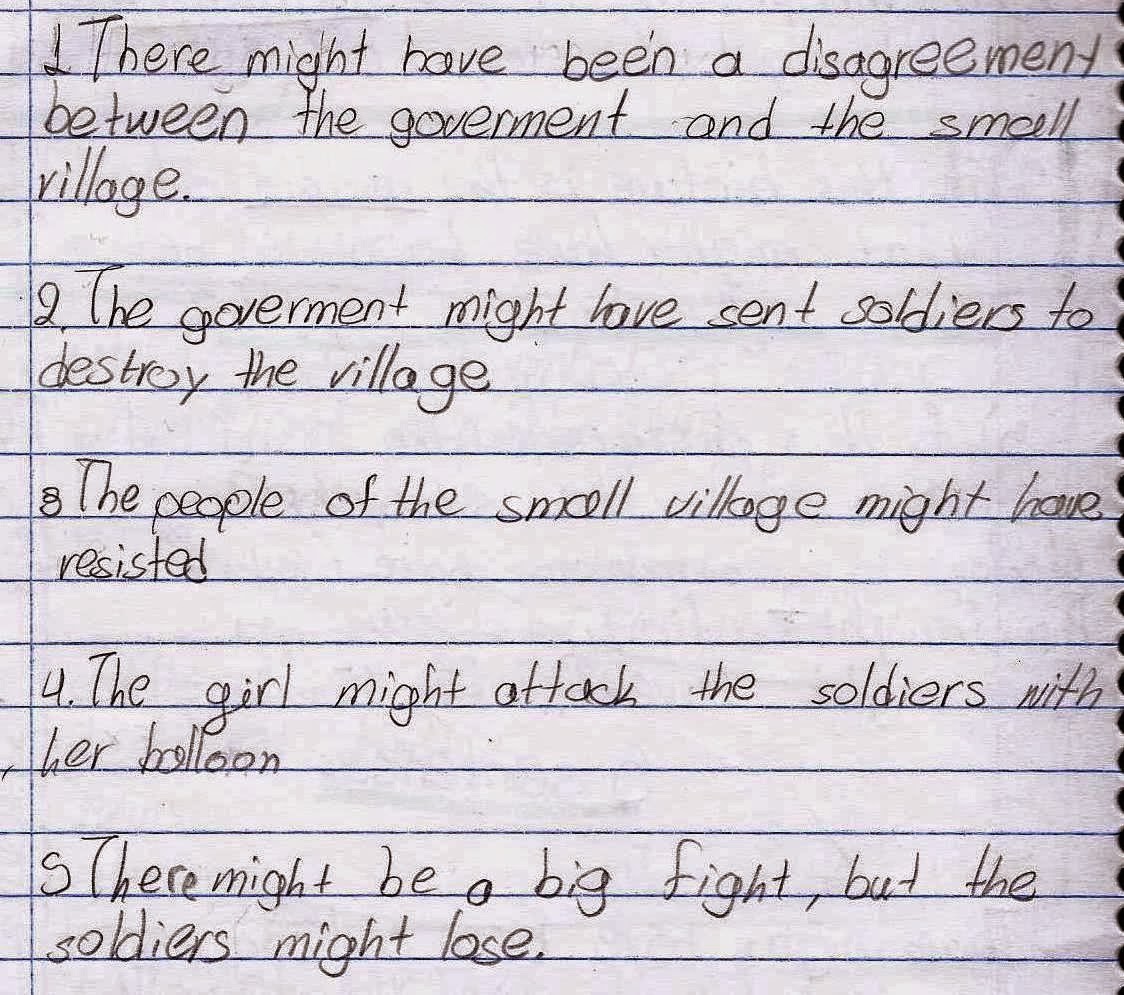 1 There might have been a disagreement
between the goverment and the small
village.
2. The goverment might have sent soldiers to
destroy the village
3 The people of the small village might have
resisted
4. The girl might attack the soldiers with
her balloon
5 There might be a big fight, but the
soldiers might lose.